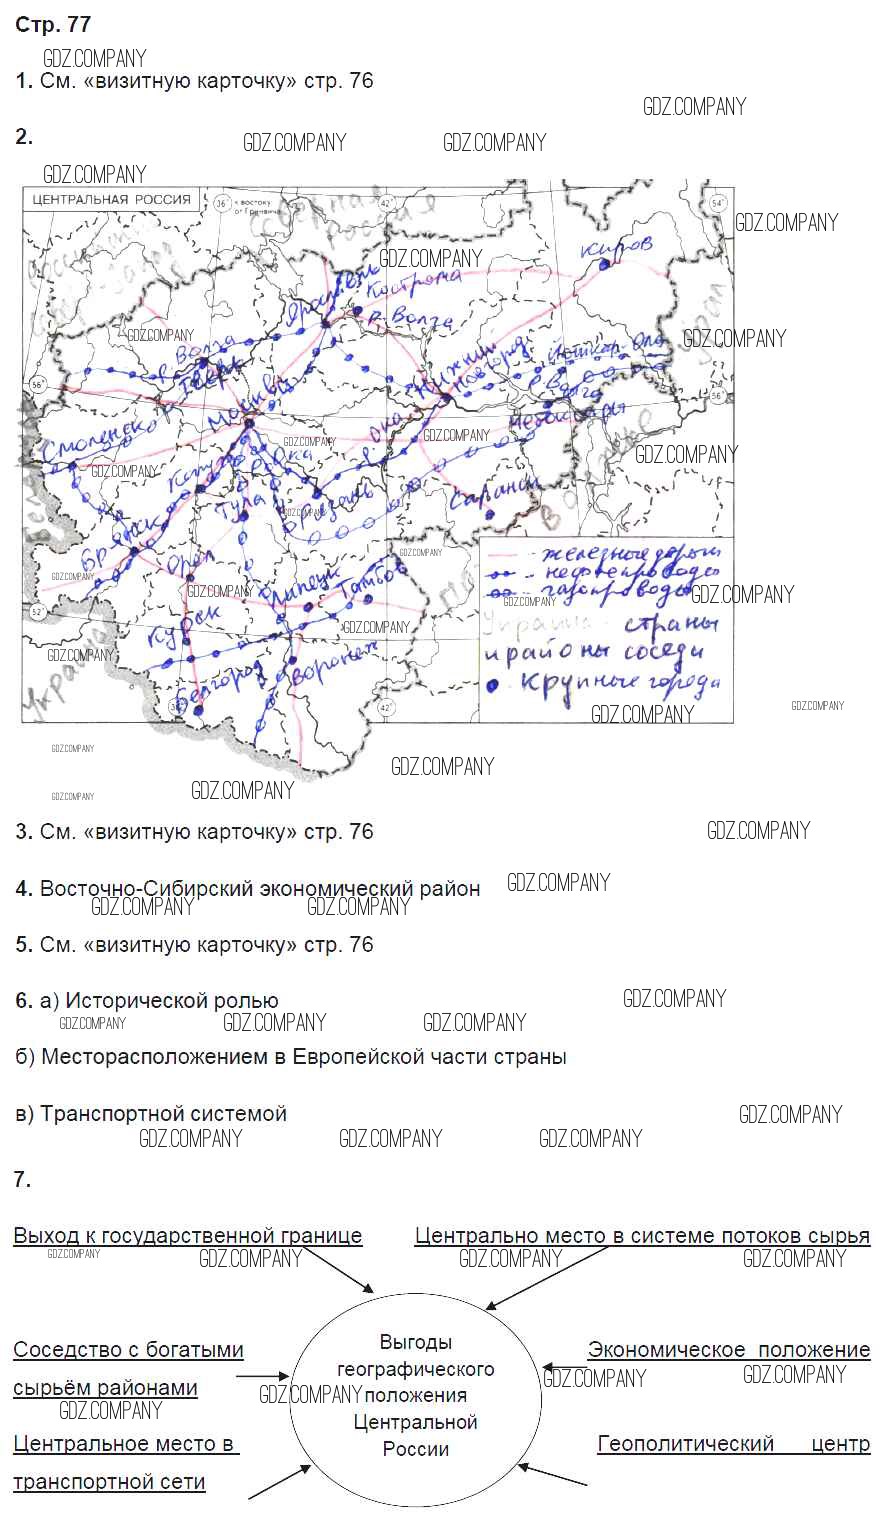 Стр. 77
GDZ.COMPANY
1. См. «визитную карточку» стр. 76
GDZ.COMPANY
2.
GDZ.COMPANY GDZ.COMPANY
GDZ.COMPANY
ЦЕНТРАЛЬНАЯ РОССИЯ
36° к востоку от Гринвича
42°
54°
GDZ.COMPANY
Северная Россия
Киров
GDZ.COMPANY
Ярославль
Кострома
р. Волга
Урал
GDZ.COMPANY
GDZ.COMPANY
р. Волга
Тверь
Москва
Нижний Новгород
Йошкар-Ола
р. Волга
Чебоксары
56°
56°
Ока
Смоленск
GDZ.COMPANY
GDZ.COMPANY
GDZ.COMPANY
GDZ.COMPANY
Калуга
р. Ока
Тула
Рязань
GDZ.COMPANY
Саранск
Брянск
Орёл
GDZ.COMPANY
GDZ.COMPANY
GDZ.COMPANY
Липецк
Тамбов
- железные дороги
- нефтепроводы
- газопроводы
GDZ.COMPANY
GDZ.COMPANY
52°
Курск
GDZ.COMPANY
GDZ.COMPANY
Украина - страны
и районы соседи
Украина
Белгород
Воронеж
• Крупные города
42°
GDZ.COMPANY
GDZ.COMPANY
GDZ.COMPANY
GDZ.COMPANY
GDZ.COMPANY
GDZ.COMPANY
3. См. «визитную карточку» стр. 76
GDZ.COMPANY
4. Восточно-Сибирский экономический район
GDZ.COMPANY
GDZ.COMPANY GDZ.COMPANY
5. См. «визитную карточку» стр. 76
6. а) Исторической ролью
GDZ.COMPANY
GDZ.COMPANY GDZ.COMPANY GDZ.COMPANY
б) Месторасположением в Европейской части страны
в) Транспортной системой
GDZ.COMPANY
GDZ.COMPANY GDZ.COMPANY GDZ.COMPANY
7.
Выход к государственной границе
Центрально место в системе потоков сырья
GDZ.COMPANY GDZ.COMPANY GDZ.COMPANY GDZ.COMPANY
Соседство с богатыми
сырьём районами
Выгоды
географического
положения
Центральной
России
Экономическое положение
GDZ.COMPANY GDZ.COMPANY
GDZ.COMPANY
GDZ.COMPANY
Центральное место в
транспортной сети
Геополитический центр